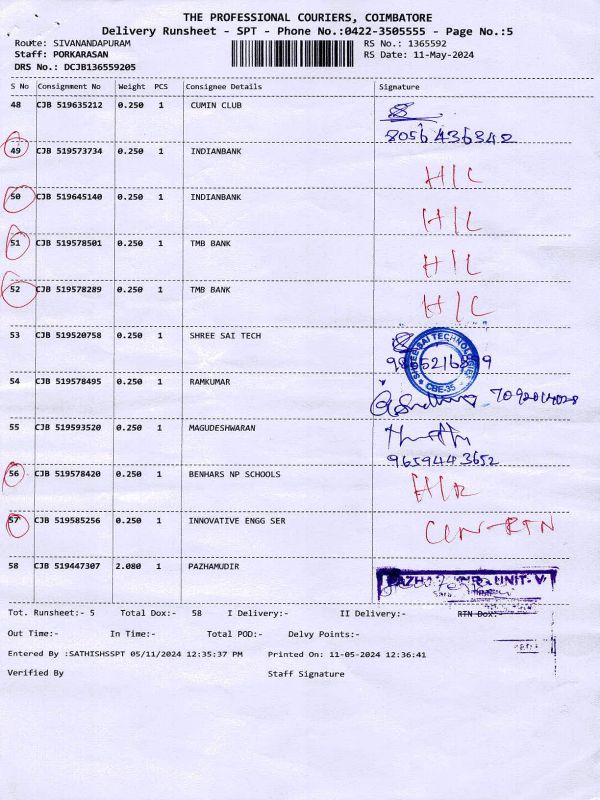 THE PROFESSIONAL COURIERS, COIMBATORE
Delivery Runsheet - SPT - Phone No.:0422-3505555 - Page No.:5
Route: SIVANANDAPURAM RS No.: 1365592
Staff: PORKARASAN RS Date: 11-May-2024
DRS No.: DCJB136559205
S No Consignment No Weight PCS Consignee Details Signature
48 CJB 519635212 0.250 1 CUMIN CLUB
8056436342
49 CJB 519573734 0.250 1 INDIANBANK H/C
50 CJB 519645140 0.250 1 INDIANBANK H/C
51 CJB 519578501 0.250 1 TMB BANK H/C
52 CJB 519578289 0.250 1 TMB BANK H/C
53 CJB 519520758 0.250 1 SHREE SAI TECH SHREE SAI TECHNOLOGIES CBE-35
54 CJB 519578495 0.250 1 RAMKUMAR
55 CJB 519593520 0.250 1 MAGUDESHWARAN
9659443652
56 CJB 519578420 0.250 1 BENHARS NP SCHOOLS
57 CJB 519585256 0.250 1 INNOVATIVE ENGG SER
58 CJB 519447307 2.080 1 PAZHAMUDIR UNIT-V
Tot. Runsheet:- 5 Total Dox:- 58 I Delivery:- II Delivery:- RTN Dox:-
Out Time:- In Time:- Total POD:- Delvy Points:-
Entered By :SATHISHSSPT 05/11/2024 12:35:37 PM Printed On: 11-05-2024 12:36:41
Verified By Staff Signature